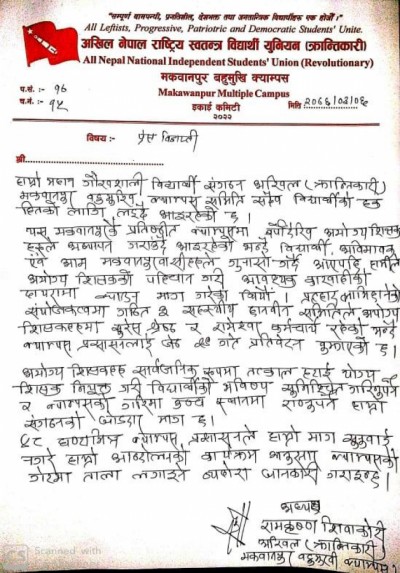 "सम्पूर्ण वामपन्थी, प्रगतिशील, देशभक्त तथा जनतान्त्रिक विद्यार्थीहरु एक होऔं !"
All Leftists, Progressive, Patriotic and Democratic Students' Unite.
अखिल नेपाल राष्ट्रिय स्वतन्त्र विद्यार्थी युनियन (क्रान्तिकारी)
All Nepal National Independent Students' Union (Revolutionary)
मकवानपुर बहुमुखि क्याम्पस
Makawanpur Multiple Campus
इकाई कमिटी
२०२२
प.सं. :- १०
च.नं. :- १५
मिति
विषय :- प्रेस विज्ञप्ती
श्री
हाम्रो महान गौरवशाली विद्यार्थी संगठन अखिल (क्रान्तिकारी)
क्याम्पस समिति सदैव विद्यार्थीको हक
हितको लागि लड्दै आइरहेको छ ।
क्याम्पसमा अयोग्य शिक्षक
हरुले अध्यापन गराउँदै आइरहेको भन्दै विद्यार्थी, अभिभावक
एवं आम गुनासो गर्दै आएपछि हामीले
अयोग्य शिक्षकको पहिचान गरी आवश्यक कारवाहीको
माग गरेका थियौं ।
छानवीन समितिले अयोग्य
शिक्षकहरुमा सुरेस श्रेष्ठ र कर्माचार्य रहेको भन्दै
क्याम्पस प्रशासनलाई जेठ गते प्रतिवेदन बुझाएको छ ।
अयोग्य शिक्षकहरु सार्वजनिक रुपमा तत्काल हटाई योग्य
शिक्षक नियुक्त गरी विद्यार्थीको भविष्य सुनिश्चित गरिनुपर्ने
र क्याम्पसको गरिमा उच्च स्थानमा राख्नुपर्ने हाम्रो
संगठनको माग छ ।
४८ घण्टाभित्र क्याम्पस प्रशासनले हाम्रो माग सुनुवाई
नगरे हाम्रो आन्दोलनको कार्यक्रम अनुसार क्याम्पसको
गेटमा ताला लगाइने व्यहोरा जानकारी गराइन्छ ।
अध्यक्ष
रामकृष्ण सिवाकोटी
अखिल (क्रान्तिकारी)
क्याम्पस
CS Scanned with